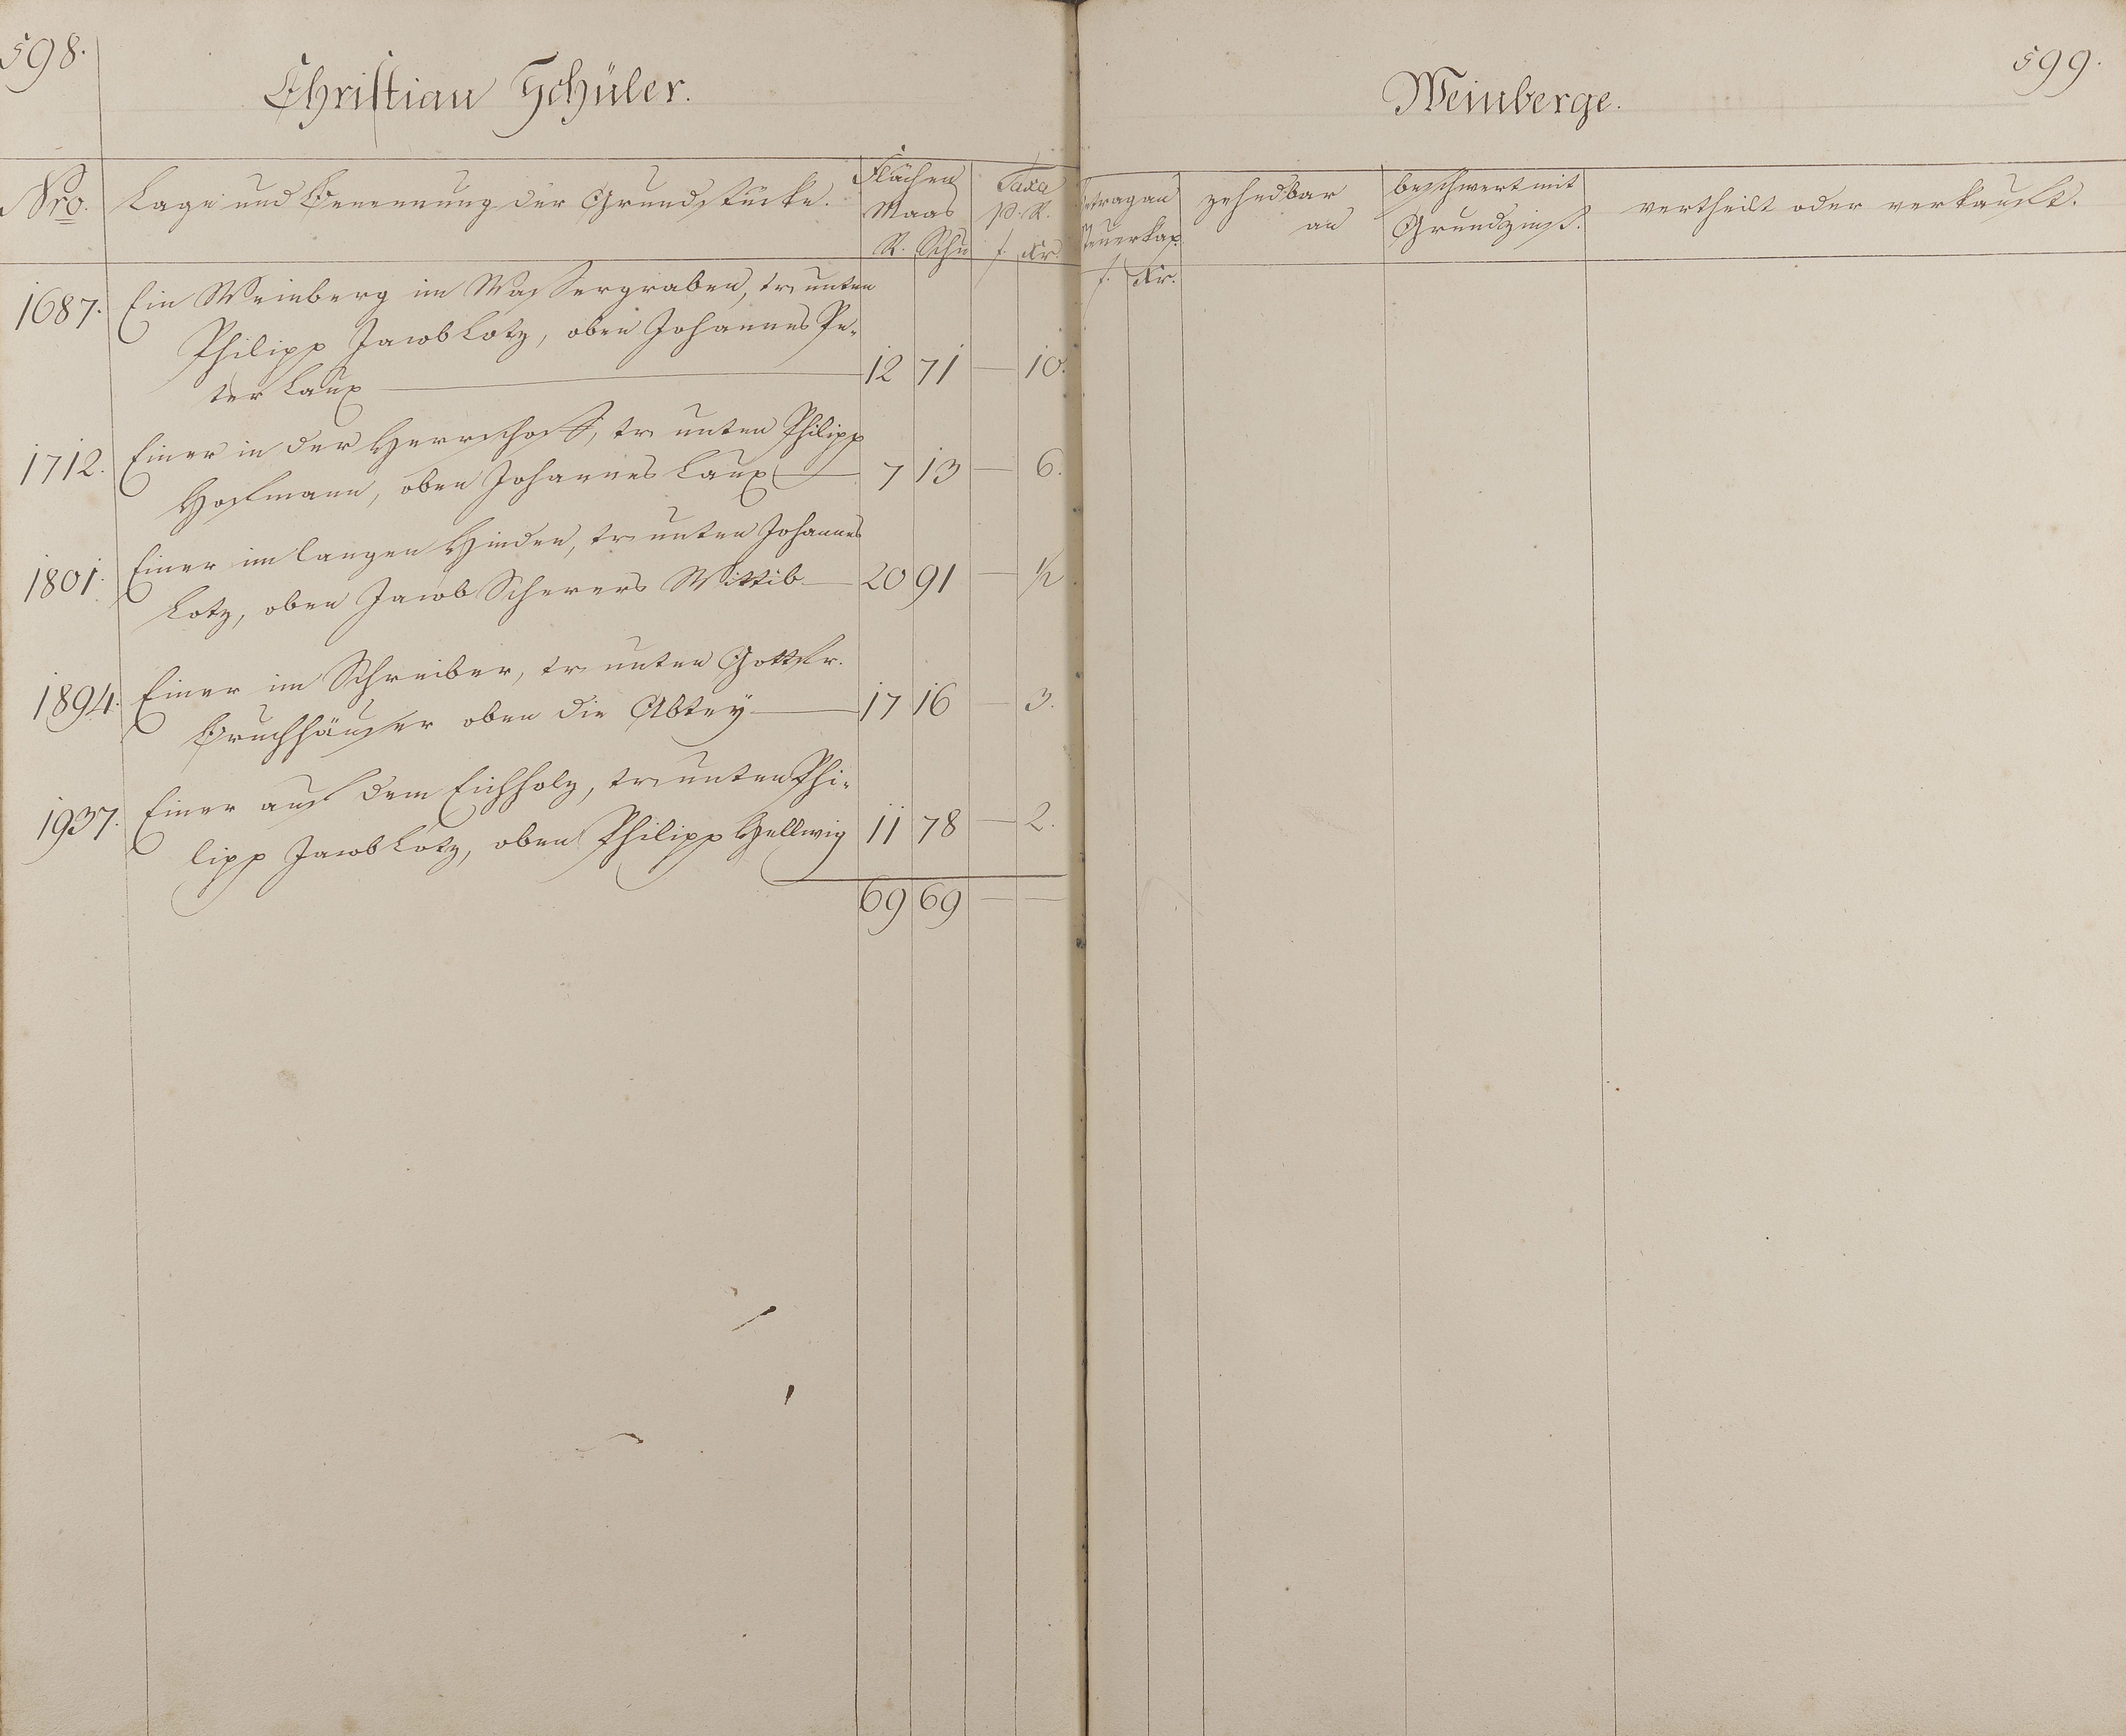 598.
Christian Schüler.
Nro.
Lage und Benennung der Grundstücke.
Flächen
Maas
R. Schu
Taxa
p. R.
f. Kr.
1687. Ein Weinberg im Wassergraben, tr. unten
Philipp Jacob Lotz, oben Johannes Pe-
ter Laux — 12 71 — 10.
1712. Einer in der Herrschaft, tr. unten Philipp
Hofmann, oben Johannes Laux — 7 13 — 6.
1801. Einer im langen Hinden, tr. unten Johannes
Lotz, oben Jacob Scherers Wittib — 20 91 — 1/2
1894. Einer im Schreiber, tr. unten Gottfr.
Bruchhäuser oben die Abtey — 17 16 — 3.
1937. Einer auf dem Eichholz, tr. unten Phi-
lipp Jacob Lotz, oben Philipp Hellwig 11 78 — 2.
69 69 — —
599.
Weinberge.
Betrag an
Steuerkap.
f. Kr.
zehndbar
an
beschwert mit
Grundzinß.
vertheilt oder verkauft.